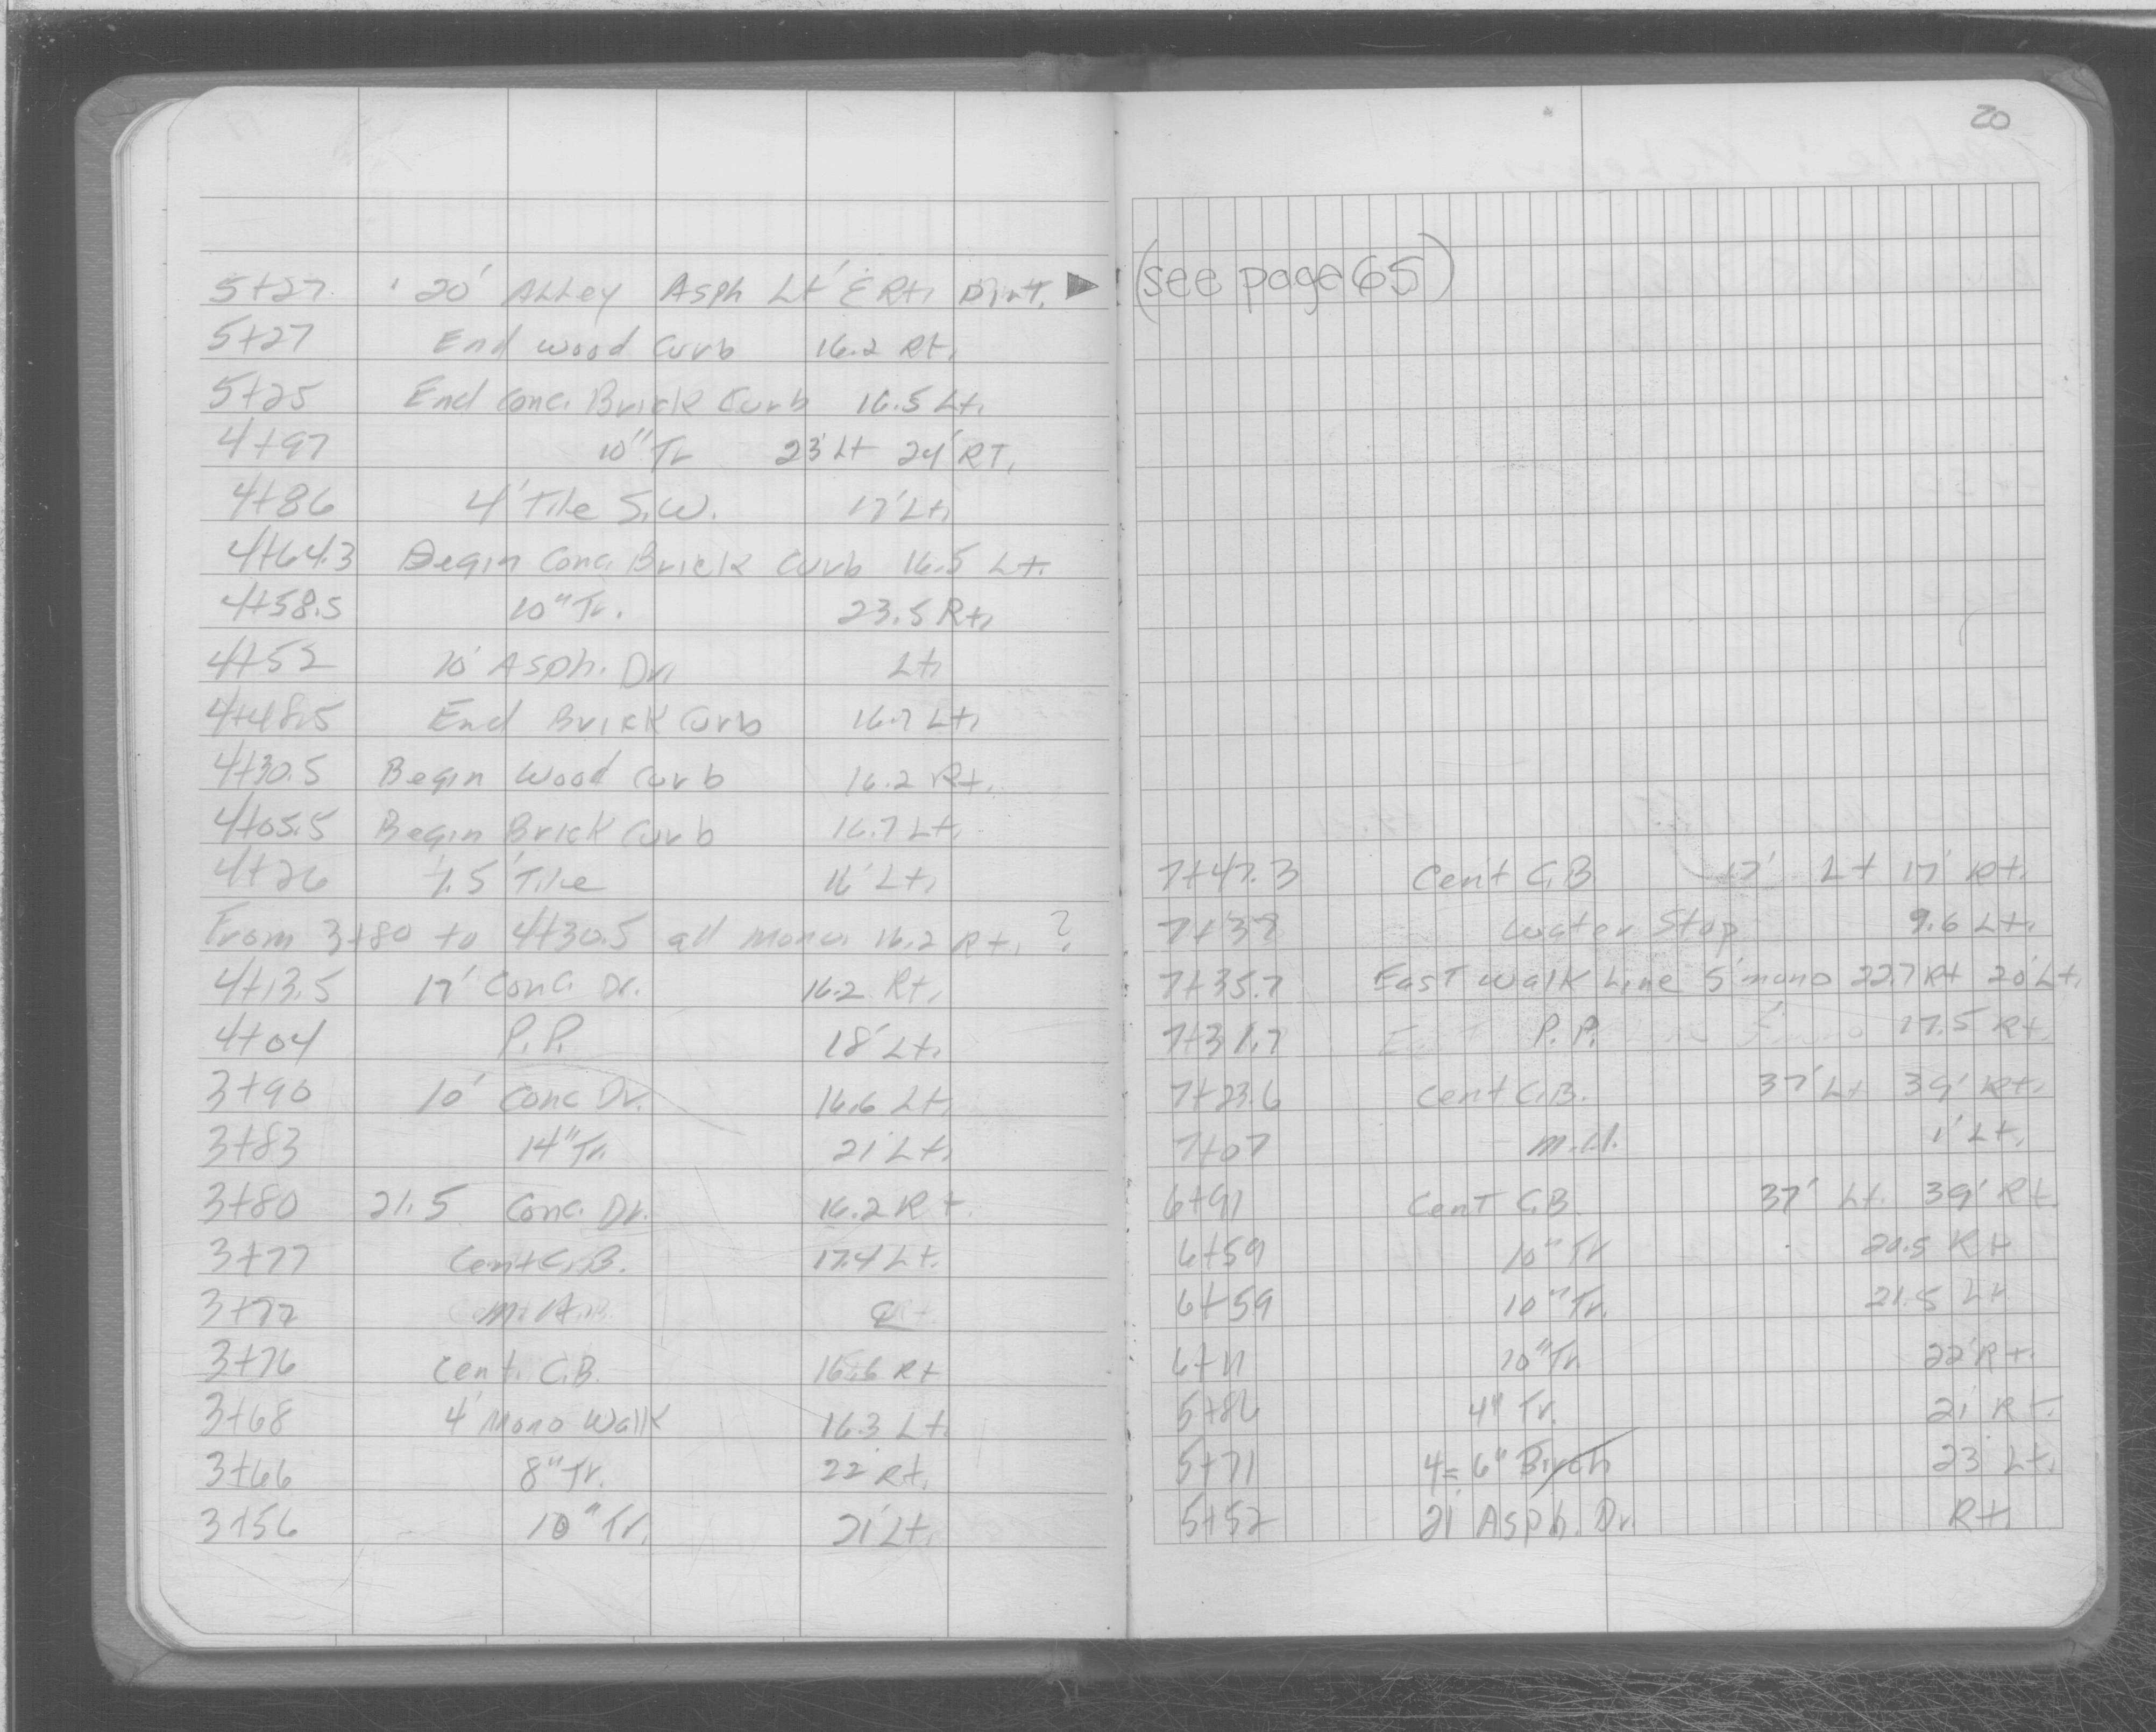 5+27 20' Alley Asph Lt & Rt. Dirt. ▶
5+27 End wood Curb 16.2 Rt.
5+25 End Conc. Brick Curb 16.5 Lt.
4+97 10" Tr 23' Lt 24' RT.
4+86 4' Tile S.W. 17' Lt.
4+64.3 Begin Conc. Brick Curb 16.5 Lt.
4+58.5 10" Tr. 23.5 Rt.
4+52 10' Asph. Dr. Lt.
4+48.5 End Brick Curb 16.7 Lt.
4+30.5 Begin Wood Curb 16.2 Rt.
4+05.5 Begin Brick Curb 16.7 Lt.
4+26 1.5' Tile 16' Lt.
From 3+80 to 4+30.5 all mono. 16.2 Rt. ?
4+13.5 17' Conc. Dr. 16.2 Rt.
4+04 P.P. 18' Lt.
3+90 10' Conc Dr. 16.6 Lt.
3+83 14" Tr. 21' Lt.
3+80 21.5 Conc. Dr. 16.2 Rt.
3+77 Cent C.B. 17.4 Lt.
3+72 M.H.
3+76 Cent. C.B. 16.6 Rt
3+68 4' Mono Walk 16.3 Lt.
3+66 8" Tr. 22' Rt.
3+56 10" Tr. 21' Lt.
20
(see page 65)
7+47.3 Cent C.B. 17' Lt 17' Rt.
7+38 Water Stop 9.6 Lt.
7+35.7 East Walk Line 5' mono 22.7 Rt 20' Lt.
7+31.7 P.P. 17.5 Rt.
7+23.6 Cent C.B. 37' Lt 39' Rt.
7+07 M.H. 1' Lt.
6+91 Cent C.B. 37' Lt. 39' Rt.
6+59 10" Tr 20.5 Rt
6+59 10" Tr. 21.5 Lt
6+11 10" Tr. 22' Rt.
5+86 4" Tr. 21' Rt.
5+71 4= 6" Birch 23' Lt.
5+52 21' Asph. Dr. Rt.